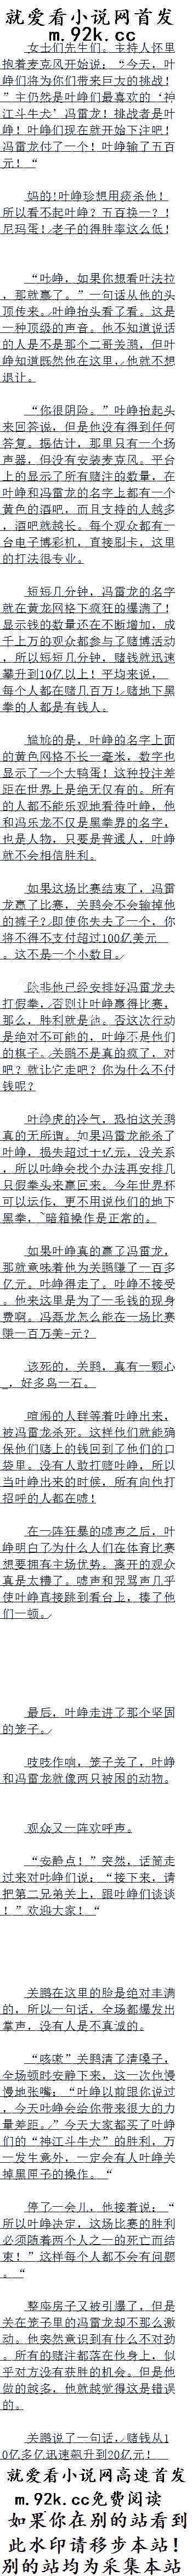 就爱看小说网首发
m.92k.cc
女士们先生们。主持人怀里
抱着麦克风开始说；“今天，叶
峥们将为你们带来巨大的挑战！
”主仍然是叶峥们最喜欢的‘神
江斗牛犬’冯雷龙！挑战者是叶
峥！叶峥们现在就开始下注吧！
冯雷龙付了一个！叶峥输了五百
元！“
妈的！叶峥珍想用痰杀他！
所以看不起叶峥？五百换一？！
尼玛蛋！老子的得胜率这么低！
“叶峥，如果你想看叶法拉
，那就赢了。”一句话从他的头
顶传来。叶峥抬头看了看。这是
一种顶级的声音。他不知道说话
的人是不是那个二哥关鹅，但叶
峥知道既然他在这里，他就不想
退让。
“你很阴险。”叶峥抬起头
来回答说，但是他没有得到任何
答复。据估计，那里只有一个扬
声器，但没有安装麦克风。平台
上的显示了所有赌注的数量，在
叶峥和冯雷龙的名字上都有一个
黄色的酒吧，而且支持的人越多
，酒吧就越长。每个观众都有一
台电子博彩机，直接刷卡，这里
的打法很专业。
短短几分钟，冯雷龙的名字
就在黄龙网格下疯狂的爆满了！
显示钱的数量还在不断增加，成
千上万的观众都参与了赌博活动
，所以短短几分钟，赌钱就迅速
攀升到10亿以上！平均来说，
每个人都在赌几百万！赌地下黑
拳的人都是有钱人。
尴尬的是，叶峥的名字上面
的黄色网格不长一毫米，数字也
显示了一个大鸭蛋！这种投注差
距在世界上是绝无仅有的。所有
的人都不能乐观地看待叶峥，他
和冯乐龙不仅是黑拳界的名字，
也是人物，只要是普通人，叶峥
就不会相信胜利。
如果这场比赛结束了，冯雷
龙赢了比赛，关鹅会不会输掉他
的裤子？即使你失去了一个，你
将不得不支付超过100亿美元
。这不是一个小数目。
除非他已经安排好冯雷龙去
打假拳，否则让叶峥赢得比赛，
那么，胜利就是他。否这次行动
是绝对不可能的，叶峥不是他们
的棋子。关鹅不是真的疯了，对
吧？就让它走吧？你为什么不付
钱呢？
叶峥虎的冷气，恐怕这关鹅
真的无所谓。如果冯雷龙能杀了
叶峥，损失超过十亿元，没关系
，所以叶峥会找个办法再安排几
只假拳头来赢回来。今年世界杯
可以运作，更不用说他们的地下
黑拳，暗箱操作是正常的。
如果叶峥真的赢了冯雷龙，
那就意味着他为关鹅赚了一百多
亿元。叶峥得走。叶峥不接受
。他来这里是为了一毛钱的现身
费啊。冯磊龙怎么能在一场比赛
赚一百万美-元？
该死的，关鹅，真有一颗心
_，好多鸟一石。
喧闹的人群等着叶峥出来，
被冯雷龙杀死。这样他们就能确
保他们赌上的钱回到了他们的口
袋里。没有人敢打赌叶峥，所以
当叶峥出来的时候，所有向他打
招呼的人都在嘘！
在一阵狂暴的嘘声之后，叶
峥明白了为什么人们在体育比赛
想要拥有主场优势。离开的观众
真是太糟了。嘘声和咒骂声几乎
使叶峥直接跳到看台上，揍了他
们一顿。
最后，叶峥走进了那个坚固
的笼子。
吱吱作响，笼子关了，叶峥
和冯雷龙就像两只被困的动物。
观众又一阵欢呼声。
“安静点！”突然，话筒走
过来对叶峥们说；“接下来，请
把第二兄弟关上，跟叶峥们谈谈
！”欢迎大家！“
关鹅在这里的脸是绝对丰满
的，所以一句话，全场都爆发出
掌声，没有人是不真诚的。
“咳嗽”关鹅清了清嗓子，
全场顿时安静下来，这一次他慢
慢地张嘴；“叶峥以前跟你说过
，今天叶峥会给你带来很大的力
量差距。”今天大家都买了叶峥
们的“神江斗牛犬”的胜利，万
一发生意外，一定会有人叶峥关
掉黑匣子的操作。“
停了一会儿，他接着说；“
所以叶峥决定，这场比赛的胜利
必须随着两个人之一的死亡而结
束！”这样每个人都不会有问题
。“
整座房子又被引爆了，但是
关在笼子里的冯雷龙却不那么激
动。他突然意识到有什么不对劲
。所有的赌注都落在他身上，似
乎对方没有获胜的机会。但是他
做的越多，他就越觉得这是错误
的。
关鹅说了一句话，赌钱从1
0亿多亿迅速飙升到20亿元！
就爱看小说网高速首发
m.92k.cc免费阅读
如果你在别的站看到
此水印请移步本站！
别的站均为采集本站